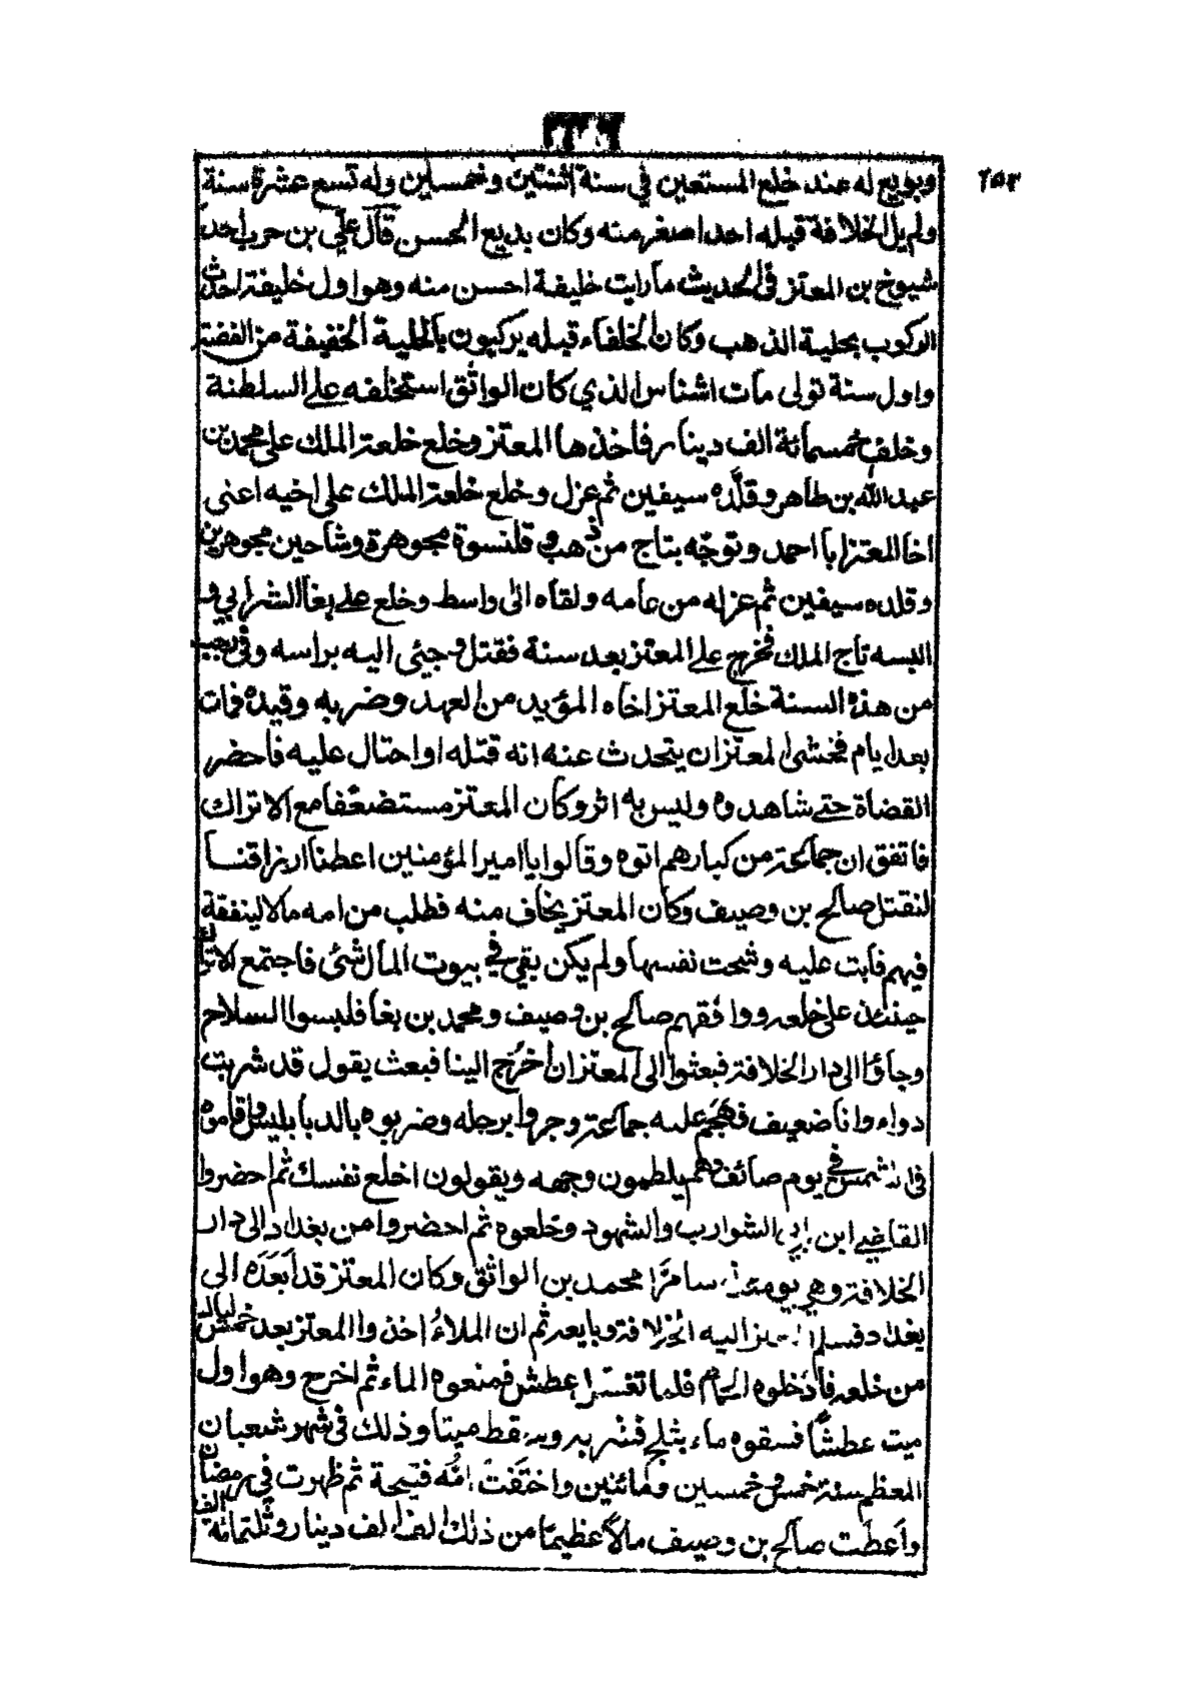 ٢٥٢
وبويع له عند خلع المستعين في سنة اثنتين وخمسين وله تسع عشرة سنة
ولم يل الخلافة قبله احد اصغر منه وكان بديع الحسن قال علي بن حرب احد
شيوخ بن المعتز في الحديث ما رايت خليفة احسن منه وهو اول خليفة احدث
الركوب بحلية الذهب وكان الخلفاء قبله يركبون بالحلية الخفيفة من الفضة
واول سنة تولى مات اشناس الذي كان الواثق استخلفه على السلطنة
وخلف خمسمائة الف دينار فاخذها المعتز وخلع خلعة الملك على محمد بن
عبد الله بن طاهر وقلَّده سيفين ثم عزل وخلع خلعة الملك على اخيه اعنى
اخا المعتز ابا احمد وتوجه بتاج من ذهب و قلنسوة مجوهرة وشاحين مجوهرين
وقلده سيفين ثم عزله من عامه ونفاه الى واسط وخلع على بغا الشرابي و
البسه تاج الملك فخرج على المعتز بعد سنة فقتل وجيئ اليه براسه وفي رجب
من هذه السنة خلع المعتز اخاه المؤيد من العهد وضربه وقيده فمات
بعد ايام فخشى المعتز ان يتحدث عنه انه قتله او احتال عليه فاحضر
القضاة حتى شاهدوه وليس به اثر وكان المعتز مستضعفا مع الاتراك
فاتفق ان جماعة من كبارهم اتوه وقالوا يا امير المؤمنين اعطنا ارزاقنا
لنقتل صالح بن وصيف وكان المعتز يخاف منه فطلب من امه مالا لينفقه
فيهم فابت عليه وشحت نفسها ولم يكن بقي في بيوت المال شئ فاجتمع الاتراك
حينئذ على خلعه ووافقهم صالح بن وصيف ومحمد بن بغا فلبسوا السلاح
وجاؤا الى دار الخلافة فبعثوا الى المعتز ان اخرج الينا فبعث يقول قد شربت
دواء وانا ضعيف فهجم عليه جماعة وجروا برجله وضربوه بالدبابيس واقاموه
في الشمس في يوم صائف وهم يلطمون وجهه ويقولون اخلع نفسك ثم احضروا
القاضي ابن ابي الشوارب والشهود وخلعوه ثم احضروا من بغداد الى دار
الخلافة وهي يومئذ سامرَّا محمد بن الواثق وكان المعتز قد ابعده الى
بغداد فسلم المعتز اليه الخلافة وبايعه ثم ان الملاءُ اخذوا المعتز بعد خمس ليال
من خلعه فادخلوه الحمام فلما تغسل عطش فمنعوه الماء ثم اخرج وهو اول
ميت عطشًا فسقوه ماء بثلج فشربه وسقط ميتا وذلك في شهر شعبان
المعظم سنة خمس وخمسين ومائتين واختفت امُّه قبيحة ثم ظهرت في رمضان
واعطت صالح بن وصيف مالًا عظيمًا من ذلك الف الف دينار وثلثمائة الف